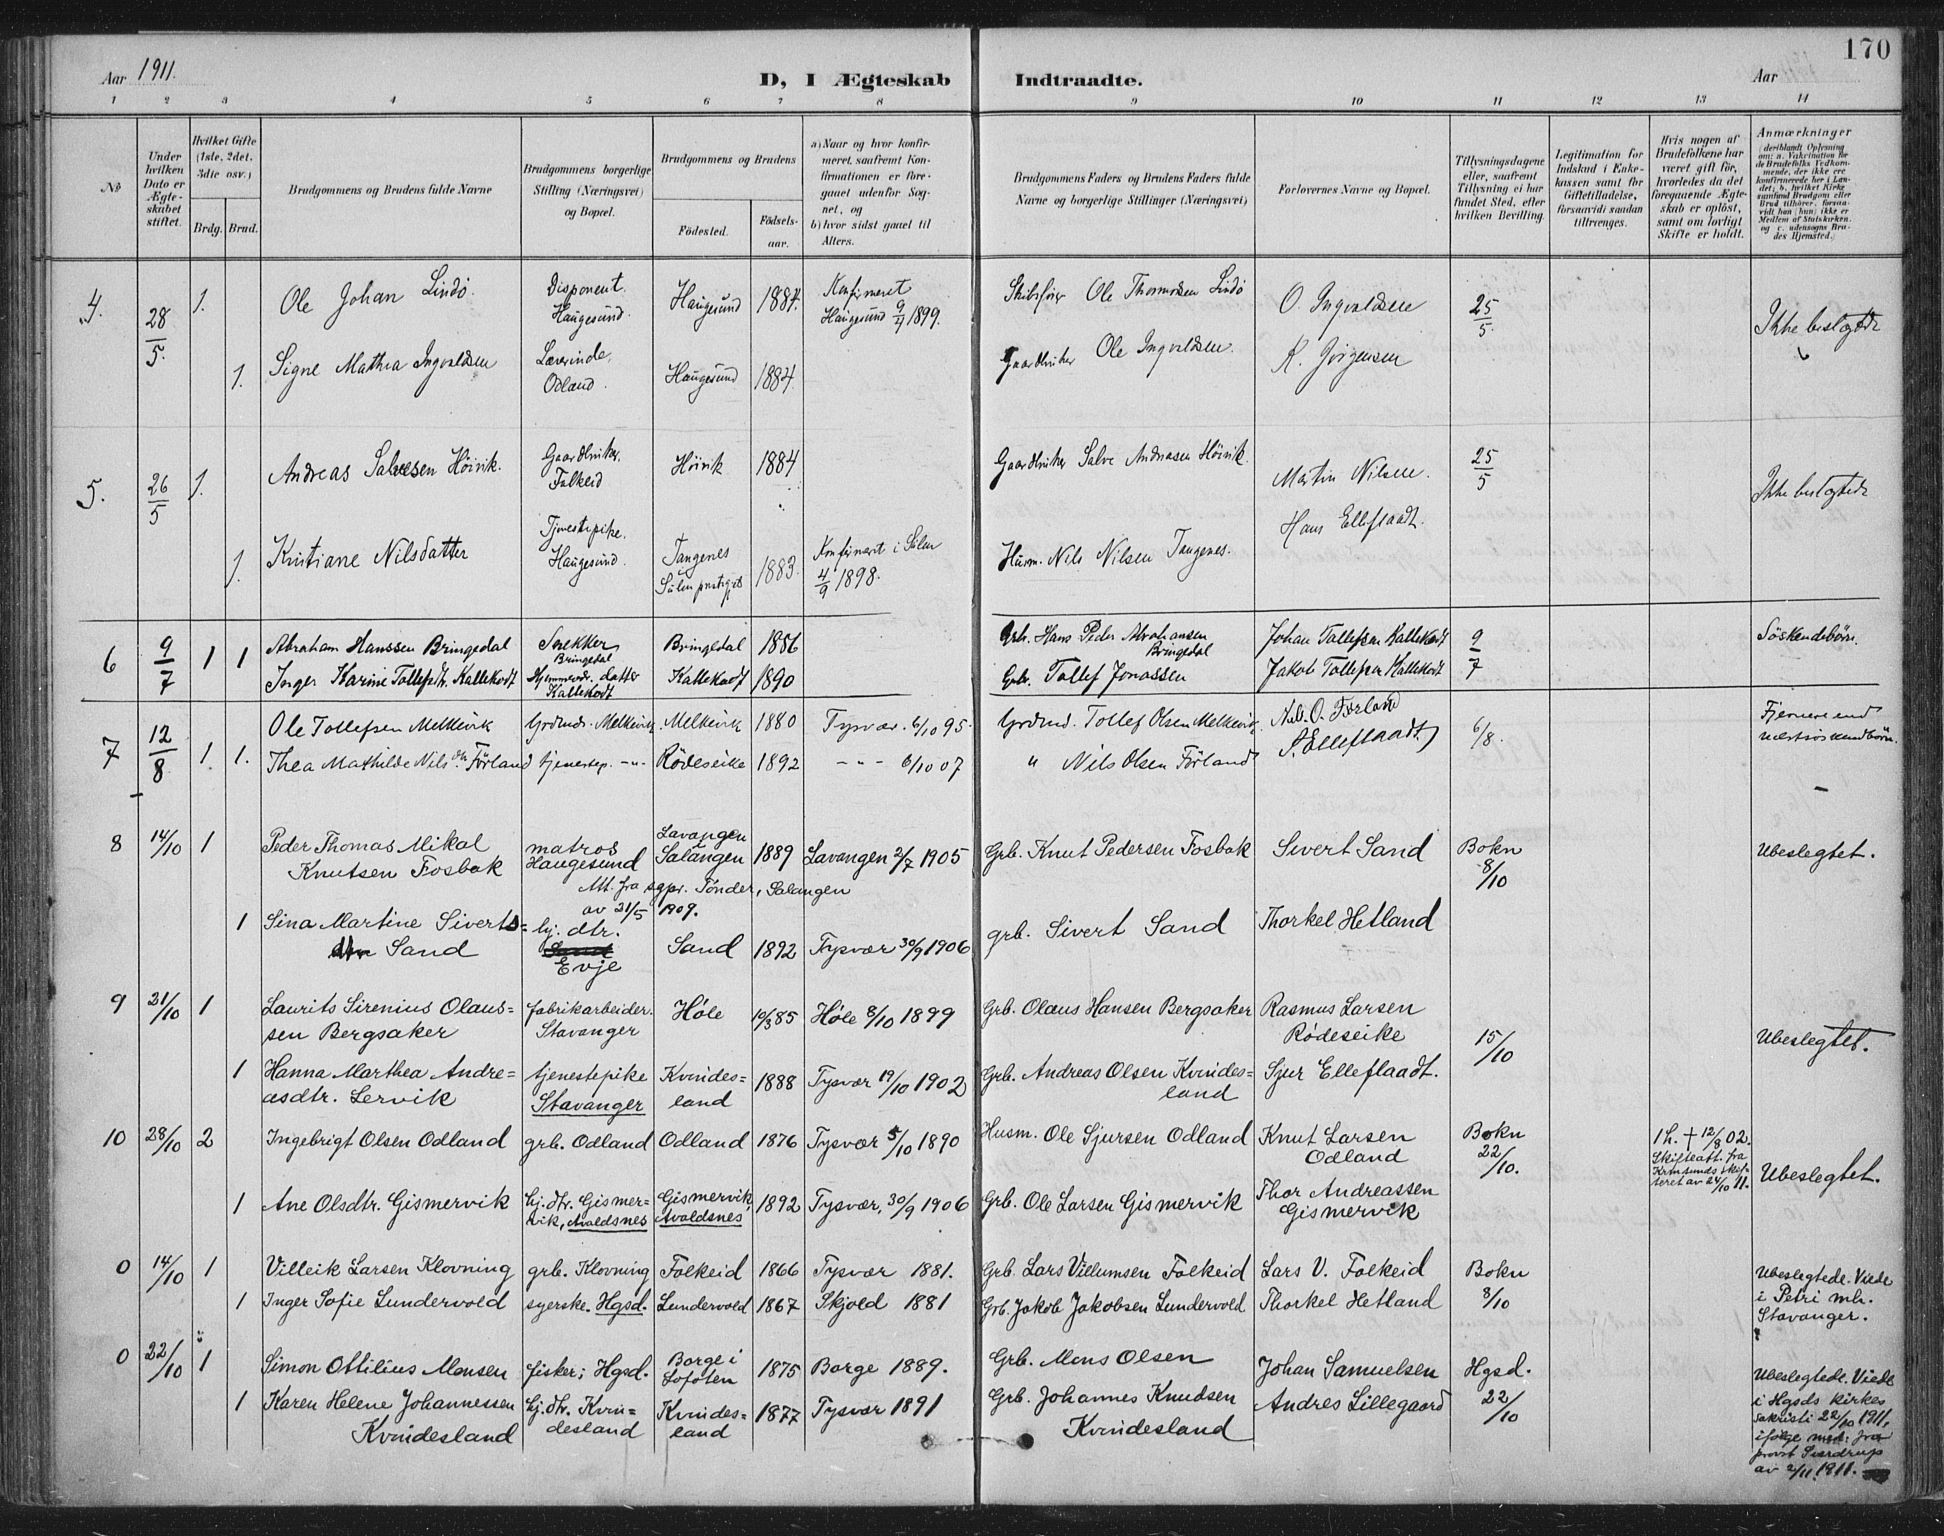 Aar 1911.
D, I Ægteskab Indtraadte.
Aar
170
1 2 3 4 5 6 7 8 9 10 11 12 13 14
No
Under hvilken Dato er Ægteskabet stiftet.
Hvilket Gifte (1ste, 2det, 3die osv.)
Brdg. Brud.
Brudgommens og Brudens fulde Navne
Brudgommens borgerlige Stilling (Næringsvei) og Bopæl.
Brudgommens og Brudens
Fødested.
Fødselsaar.
a) Naar og hvor konfirmeret, saafremt Konfirmationen er foregaaet udenfor Sognet, og
b) hvor sidst gaaet til Alters.
Brudgommens Faders og Brudens Faders fulde Navne og borgerlige Stillinger (Næringsvei)
Forlovernes Navne og Bopæl.
Tillysningsdagene eller, saafremt Tillysning ei har fundet Sted, efter hvilken Bevilling.
Legitimation for Indskud i Enkekassen samt for Giftetilladelse, forsaavidt saadan tiltrænges.
Hvis nogen af Brudefolkene har været gift før, hvorledes da det foregaaende Ægteskab er opløst, samt om lovligt Skifte er holdt.
Anmærkninger (deriblandt Oplysning om: a. Vakcination for de Brudefolks Vedkommende, der ikke ere konfirmerede her i Landet; b. hvilket Kirkesamfund Brudgom eller Brud tilhører, forsaavidt han (hun) ikke er Medlem af Statskirken, og c. udensogns Brudes Hjemsted.)
4. 28/5. 1. Ole Johan Lindö. Disponent. Haugesund. Haugesund 1884. Konfirmeret Haugesund 9/4 1899. Skibsfører Ole Thormodsen Lindö O. Ingvaldsen 25/5. Ikke beslægtede
1. Signe Mathea Ingvaldsen Lærerinde. Odland. Haugesund 1884 Gaardbruker Ole Ingvaldsen. K. Jörgensen
5. 26/5 1. Andreas Salvesen Höivik. Gaardbruker. Falkeid Höivik 1884 Gaardbruker Salve Andreasen Höivik. Martin Nilsen. 25/5 Ikke beslægtede
1. Kristiane Nilsdatter Tjenestepike. Haugesund. Tangenes Sulen prestegjæld 1883. Konfirmeret i Sulen 4/9 1898. Husm. Nils Nilsen Tangenes. Hans Elleflaadt.
6 9/7 1 1 Abraham Hanssen Bringedal Snekker Bringedal Bringedal 1856 Grb. Hans Peder Abrahansen Bringedal Johan Tollefsen Kallekodt 9/7 Söskendebörn.
Inger Karine Tollefsdtr. Kallekodt Hjemmevær. datter Kallekodt Kallekodt 1890 Grb. Tollef Jonassen Jakob Tollefsen Kallekodt
7 12/8 1. 1. Ole Tollefsen Melkevik Grdmds. Melkevik. Melkevik 1880 Tysvær. 6/10 95. Grdmd. Tollef Olsen Melkevik. Nils. O. Förland 6/8. Fjernere end næstsöskendebörn.
Thea Mathilde Nils dtr Förland tjenestep. -"- Rödeseike 1892 -"- 6/10 07 " Nils Olsen Förland S. Elleflaadt
8 14/10 1 Peder Thomas Mikal Knutsen Fosbak matros Haugesund Lavangen Salangen 1889 Lavangen 2/7 1905 Grb. Knut Pedersen Fosbak Sivert Sand Bokn 8/10 Ubeslegtet.
Att. fra sgpr. Tönder, Salangen av 21/5 1909.
1 Sina Martine Siverts= Sand hj. dtr. Evje Sand 1892 Tysvær 30/9 1906 grb. Sivert Sand Thorkel Hetland
9 21/10 1 Laurits Sirenius Olaus= sen Bergsaker fabrikarbeider. Stavanger Høle 10/3 85 Høle 8/10 1899 Grb. Olaus Hansen Bergsaker Rasmus Larsen Rödeseike 15/10 Ubeslegtet.
1 Hanna Marthea Andre= asdtr. Lervik tjenestepike Stavanger Kvindes= land 1888 Tysvær 19/10 1902 Grb. Andreas Olsen Kvindes= land Sjur Elleflaadt.
10 28/10 2 Ingebrigt Olsen Odland grb. Odland Odland 1876 Tysvær 5/10 1890 Husm. Ole Sjursen Odland Knut Larsen Odland Bokn 22/10. 1 h. + 12/8 02. Skifteatt. fra Karmsunds skifteret av 24/10 11. Ubeslegtet.
1 Ane Olsdtr. Gismervik hj. dtr. Gismervik, Avaldsnes Gismervik, Avaldsnes 1892 Tysvær, 30/9 1906 Grb. Ole Larsen Gismervik Thor Andreassen Gismervik
0 14/10 1 Villeik Larsen Klovning grb. Klovning Falkeid 1866 Tysvær 1881. Grb. Lars Villumsen Falkeid Lars V. Falkeid Bokn 8/10 Ubeslegtede. Viede i Petri mh. Stavanger.
1 Inger Sofie Lundervold syerske. Hgsd. Lundervold 1867 Skjold 1881 Grb. Jakob Jakobsen Lundervold Thorkel Hetland
0 22/10 1 Simon Ottilius Monsen fisker; Hgsd. Borge i Lofoten 1875 Borge 1889. Grb. Mons Olsen Johan Samuelsen Hgsd. 22/10 Ubeslegtede. Viede i Hgsds kirkes sakristi 22/10 1911, ifølge med. fra provst av 2/11. 1911.
1 Karen Helene Johannessen Kvindesland hj. dtr. Kvin= desland Kvindes= land 1877 Tysvær 1891 Grb. Johannes Knudsen Kvindesland Andres Lillegaard